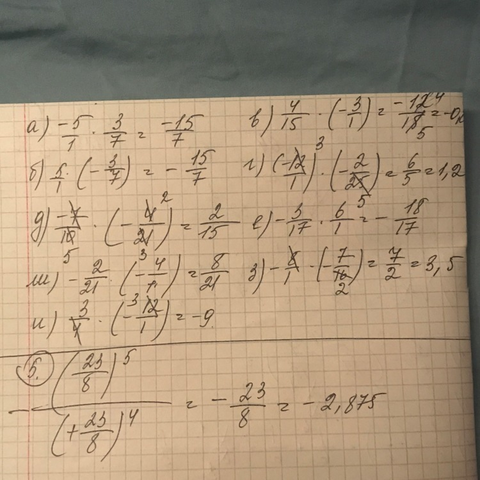 а) -5/1 · 3/7 = -15/7 в) 4/15 · (-3/1) = -12/15 =
б) 5/1 · (-3/7) = - 15/7 г) (-12/1) · (-2/25) = 6/5 = 1,2
д) -7/10 · (-4/21) = 2/15 е) -3/17 · 6/1 = - 18/17
ж) - 2/21 · (-4/1) = 8/21 з) - 8/1 · (-7/16) = 7/2 = 3,5
и) 3/4 · (-12/1) = -9
5. - (23/8)^5 / (+23/8)^4 = - 23/8 = - 2,875